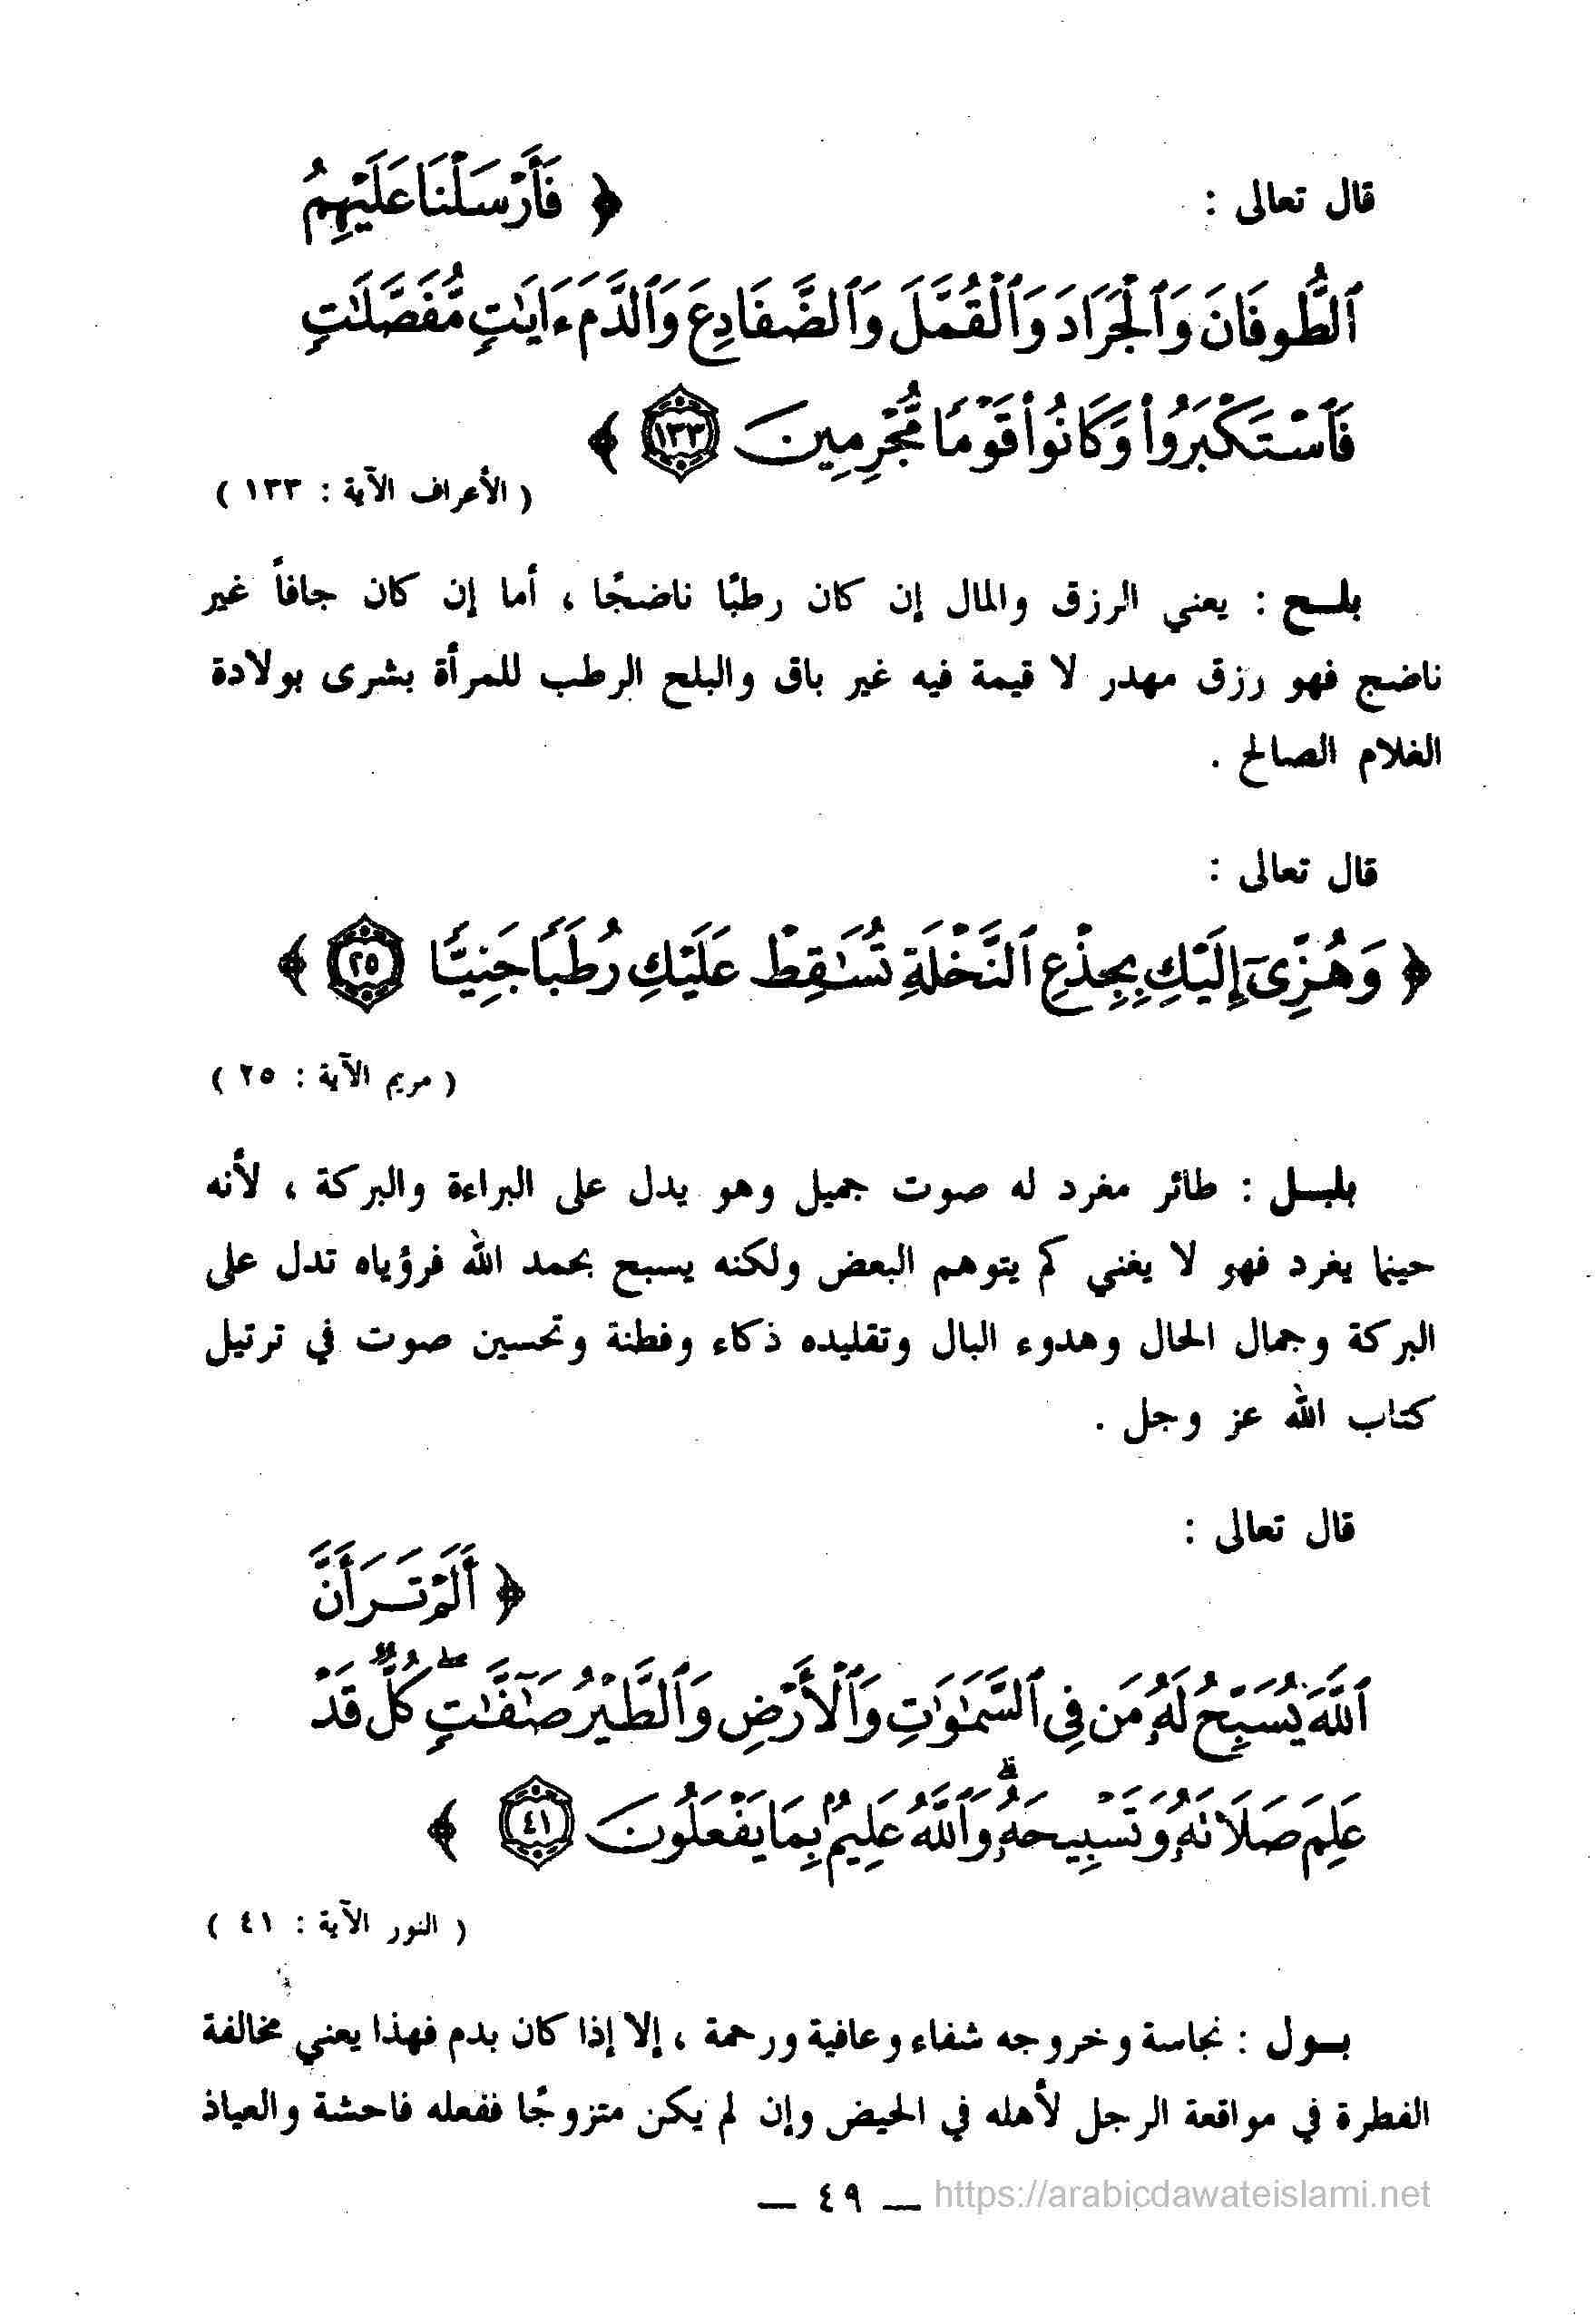 قال تعالى : ﴿ فَأَرْسَلْنَا عَلَيْهِمُ
ٱلطُّوفَانَ وَٱلْجَرَادَ وَٱلْقُمَّلَ وَٱلضَّفَادِعَ وَٱلدَّمَ ءَايَٰتٍ مُّفَصَّلَٰتٍ
فَٱسْتَكْبَرُوا۟ وَكَانُوا۟ قَوْمًا مُّجْرِمِينَ ١٣٣ ﴾
( الأعراف الآية : ١٣٣ )
بلـح : يعني الرزق والمال إن كان رطبًا ناضجًا ، أما إن كان جافاً غير
ناضج فهو رزق مهدر لا قيمة فيه غير باق والبلح الرطب للمرأة بشرى بولادة
الغلام الصالح .
قال تعالى :
﴿ وَهُزِّىٓ إِلَيْكِ بِجِذْعِ ٱلنَّخْلَةِ تُسَٰقِطْ عَلَيْكِ رُطَبًا جَنِيًّا ٢٥ ﴾
( مريم الآية : ٢٥ )
بلبـل : طائر مغرد له صوت جميل وهو يدل على البراءة والبركة ، لأنه
حينما يغرد فهو لا يغني كم يتوهم البعض ولكنه يسبح بحمد الله فرؤياه تدل على
البركة وجمال الحال وهدوء البال وتقليده ذكاء وفطنة وتحسين صوت في ترتيل
كتاب الله عز وجل .
قال تعالى :
﴿ أَلَمْ تَرَ أَنَّ
ٱللَّهَ يُسَبِّحُ لَهُۥ مَن فِى ٱلسَّمَٰوَٰتِ وَٱلْأَرْضِ وَٱلطَّيْرُ صَٰٓفَّٰتٍ ۖ كُلٌّ قَدْ
عَلِمَ صَلَاتَهُۥ وَتَسْبِيحَهُۥ ۗ وَٱللَّهُ عَلِيمٌۢ بِمَا يَفْعَلُونَ ٤١ ﴾
( النور الآية : ٤١ )
بـول : نجاسة وخروجه شفاء وعافية ورحمة ، إلا إذا كان بدم فهذا يعني مخالفة
الفطرة في مواقعة الرجل لأهله في الحيض وإن لم يكن متزوجًا ففعله فاحشة والعياذ
— ٤٩ — https://arabicdawateislami.net